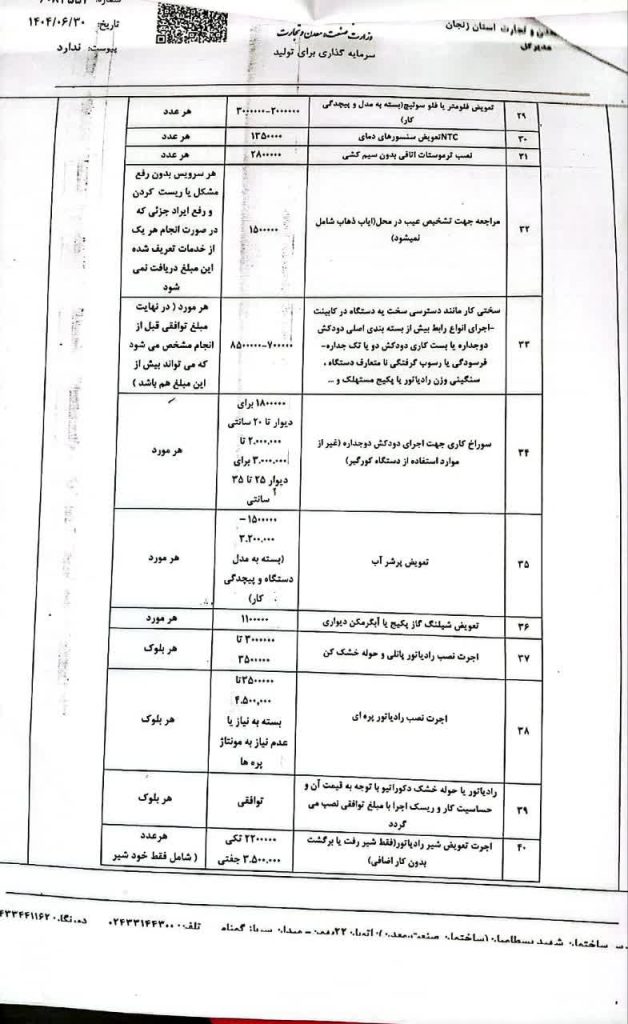 معدن و تجارت استان زنجان
مدیر کل
وزارت صنعت، معدن و تجارت
سرمایه گذاری برای تولید
تاریخ: ۱۴۰۴/۰۶/۳۰
پیوست: ندارد
۲۹ تعویض فلومتر یا فلو سوئیچ(بسته به مدل و پیچدگی کار) ۲۰۰۰۰۰۰-۳۰۰۰۰۰۰ هر عدد
۳۰ NTCتعویض سنسورهای دمای ۱۳۵۰۰۰۰ هر عدد
۳۱ نصب ترموستات اتاقی بدون سیم کشی ۲۸۰۰۰۰۰ هر عدد
۳۲ مراجعه جهت تشخیص عیب در محل(ایاب ذهاب شامل نمیشود) ۱۵۰۰۰۰۰
هر سرویس بدون رفع
مشکل یا ریست کردن
و رفع ایراد جزئی که
در صورت انجام هر یک
از خدمات تعریف شده
این مبلغ دریافت نمی
شود
۳۳ سختی کار مانند دسترسی سخت به دستگاه در کابینت
-اجرای انواع رابط بیش از بسته بندی اصلی دودکش
دوجداره یا بست کاری دودکش دو یا تک جداره-
فرسودگی یا رسوب گرفتگی نا متعارف دستگاه ،
سنگینی وزن رادیاتور یا پکیج مستهلک و ...
۷۰۰۰۰۰-۸۵۰۰۰۰۰
هر مورد ( در نهایت
مبلغ توافقی قبل از
انجام مشخص می شود
که می تواند بیش از
این مبلغ هم باشد )
۳۴ سوراخ کاری جهت اجرای دودکش دوجداره (غیر از
موارد استفاده از دستگاه کورگیر)
۱۸۰۰۰۰۰ برای
دیوار تا ۲۰ سانتی
۲.۰۰۰.۰۰۰ تا
۳.۰۰۰.۰۰۰ برای
دیوار ۲۵ تا ۳۵
سانتی
هر مورد
۳۵ تعویض پرشر آب
۱۵۰۰۰۰۰ –
۳.۲۰۰.۰۰۰
(بسته به مدل
دستگاه و پیچدگی
کار)
هر مورد
۳۶ تعویض شیلنگ گاز پکیج یا آبگرمکن دیواری ۱۱۰۰۰۰۰ هر مورد
۳۷ اجرت نصب رادیاتور پانلی و حوله خشک کن
۳۰۰۰۰۰۰ تا
۳۵۰۰۰۰۰
هر بلوک
۳۸ اجرت نصب رادیاتور پره ای
۲۵۰۰۰۰۰تا
۴.۵۰۰,۰۰۰
بسته به نیاز یا
عدم نیاز به مونتاژ
پره ها
هر بلوک
۳۹ رادیاتور یا حوله خشک دکوراتیو با توجه به قیمت آن و
حساسیت کار و ریسک اجرا با مبلغ توافقی نصب می
گردد
توافقی
هر بلوک
۴۰ اجرت تعویض شیر رادیاتور(فقط شیر رفت یا برگشت
بدون کار اضافی)
۲۲۰۰۰۰۰ تکی
۳.۵۰۰.۰۰۰ جفتی
هرعدد
( شامل فقط خود شیر
ساختمان شهید بسطامیان (ساختمان صنعت،معدن) تلفن: ۰۲۴۳۳۱۴۴۳۰۰